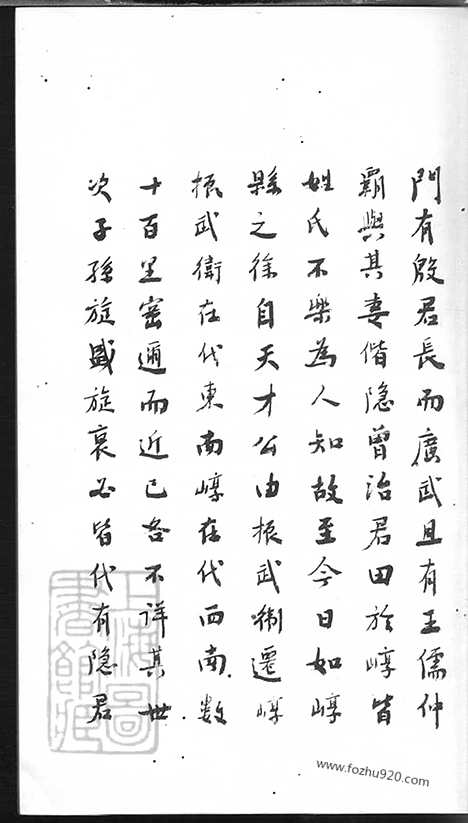 門有殷君長而廣武且有王儒仲
霸與其妻偕隐曾治君田於崞皆
姓氏不樂為人知故至今日如崞
縣之徐自天才公由振武衛遷崞
振武衛在代東南崞在代西南數
十百里密邇而近已各不詳其世
次子孫旋盛旋衰必皆代有隐君
上海圖書館藏
www.fozhu920.com